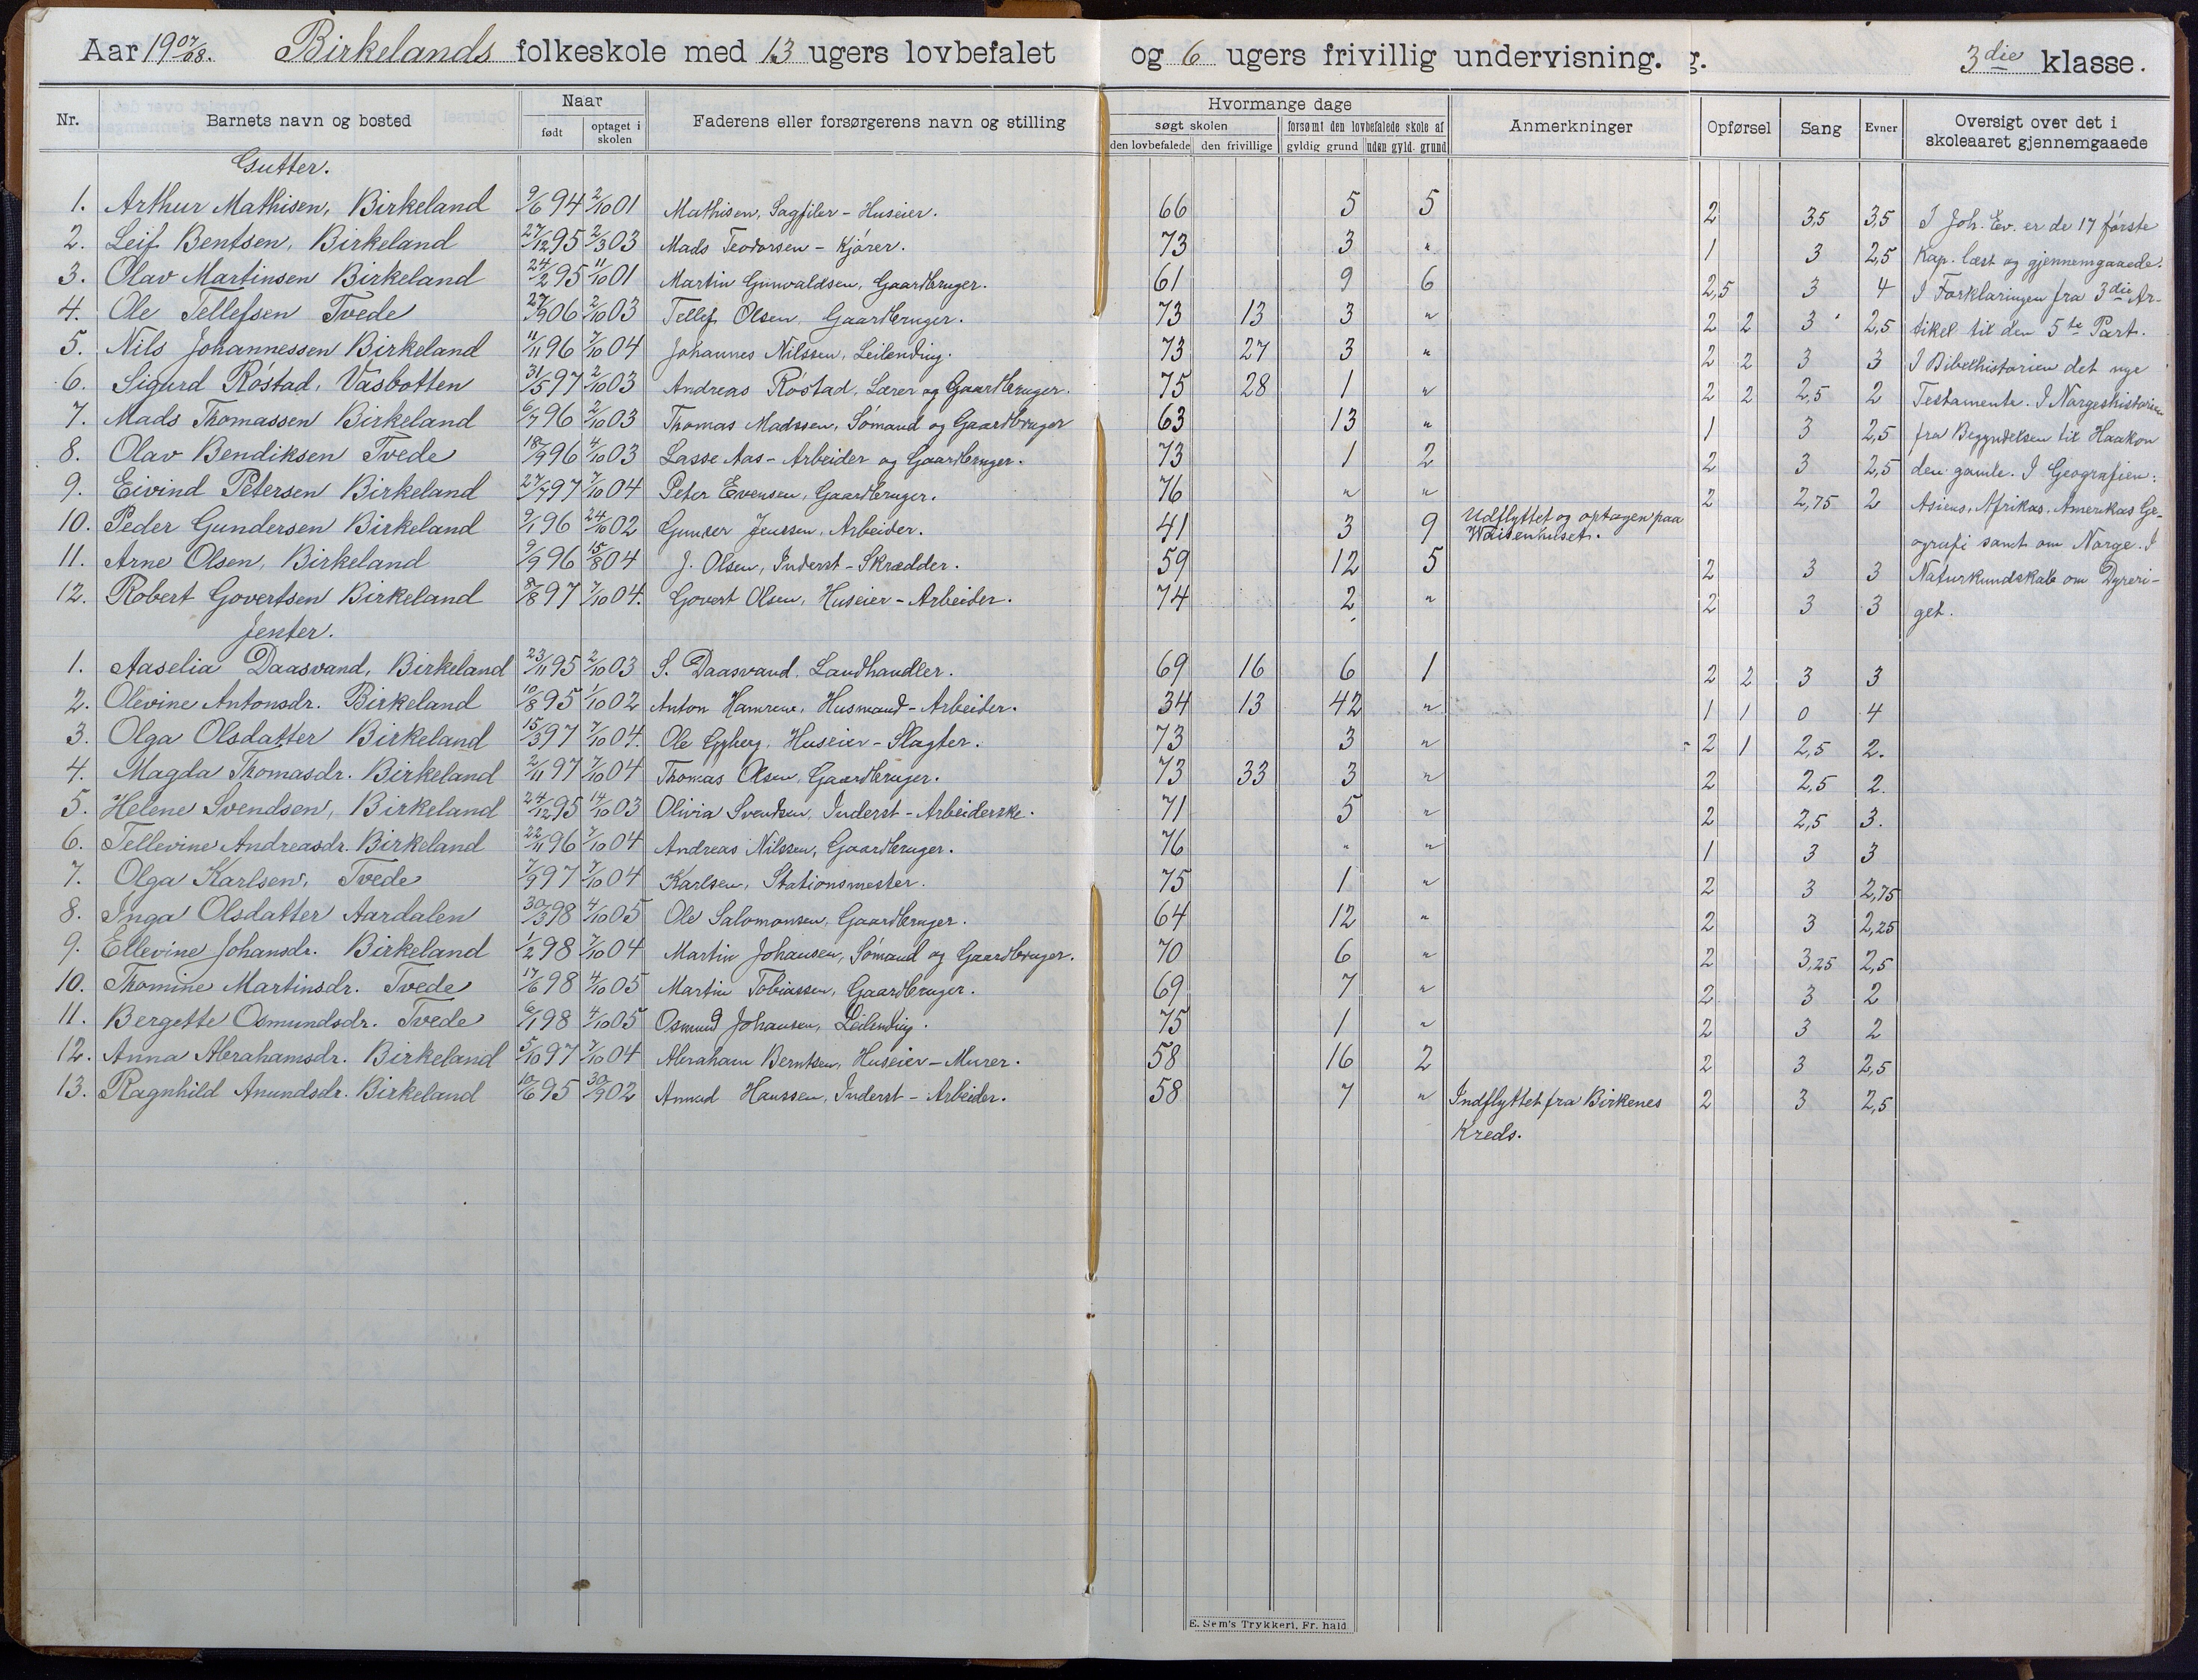 Aar 1907/08. Birkelands folkeskole med 13 ugers lovbefalet og 6 ugers frivillig undervisning. g. 3die klasse.
Nr. Barnets navn og bosted Naar født optaget i skolen Faderens eller forsørgerens navn og stilling Hvormange dage søgt skolen den lovbefalede den frivillige forsømt den lovbefalede skole af gyldig grund uden gyld. grund Anmerkninger Opførsel Sang Evner Oversigt over det i skoleaaret gjennemgaaede
Gutter.
1. Arthur Mathisen, Birkeland 9/6 94 2/10 01 Mathisen, Sagfiler - Huseier. 66 5 5 2 3,5 3,5 I Joh. Ev. er de 17 første
2. Leif Bentsen, Birkeland 27/12 95 2/3 03 Mads Teodorsen - Kjører. 73 3 " 1 3 2,5 Kap. læst og gjennemgaaede.
3. Olav Martinsen Birkeland 24/2 95 11/10 01 Martin Gunvaldsen, Gaardbruger. 61 9 6 2,5 3 4 I Forklaringen fra 3die Ar-
4. Ole Tellefsen Tvede 27/9 06 2/10 03 Tellef Olsen, Gaardbruger. 73 13 3 " 2 2 3 2,5 tikel til den 5te Part.
5. Nils Johannessen Birkeland 11/11 96 7/10 04 Johannes Nilssen, Leilending. 73 27 3 " 2 2 3 3 I Bibelhistorien det nye
6. Sigurd Røstad, Vasbotten 31/5 97 2/10 03 Andreas Røstad, Lærer og Gaardbruger. 75 28 1 " 2 2 2,5 2 Testamente. I Norgeshistorien
7. Mads Thomassen Birkeland 6/7 96 2/10 03 Thomas Madssen, Sømand og Gaardbruger 63 13 " 1 3 2,5 fra Begyndelsen til Haakon
8. Olav Bendiksen Tvede 18/9 96 4/10 03 Lasse Aas - Arbeider og Gaardbruger. 73 1 2 2 3 2,5 den gamle. I Geografien:
9. Eivind Petersen Birkeland 27/7 97 7/10 04 Peter Evensen, Gaardbruger. 76 " " 2 2,75 2 Asiens, Afrikas, Amerikas Ge-
10. Peder Gundersen Birkeland 9/1 96 24/10 02 Gunder Jenssen, Arbeider. 41 3 9 Udflyttet og optagen paa Waisenhuset. ografi samt om Norge. I
11. Arne Olsen, Birkeland 9/9 96 15/8 04 J. Olsen, Inderst - Skrædder. 59 12 5 2 3 3 Naturkundskab om Dyreri-
12. Robert Govertsen Birkeland 8/8 97 7/10 04. Govert Olsen, Huseier - Arbeider. 74 2 " 2 3 3 get.
Jenter.
1. Aaselia Daasvand, Birkeland 23/11 95 2/10 03 S. Daasvand, Landhandler. 69 16 6 1 2 2 3 3
2. Olevine Antonsdr. Birkeland 10/8 95 1/10 02 Anton Hamren, Husmand - Arbeider. 34 13 42 " 1 1 0 4
3. Olga Olsdatter Birkeland 15/3 97 7/10 04. Ole Gyberg, Huseier - Slagter. 73 3 " 2 1 2,5 2.
4. Magda Thomasdr. Birkeland 2/11 97 7/10 04 Thomas Olsen, Gaardbruger. 73 33 3 " 2 2,5 2.
5. Helene Svendsen, Birkeland 24/12 95 14/10 03 Olivia Svendsen, Inderst - Arbeiderske. 71 5 " 2 2,5 3.
6. Tellevine Andreasdr. Birkeland 22/11 96 7/10 04 Andreas Nilssen, Gaardbruger. 76 " " 1 3 3
7. Olga Karlsen, Tvede 7/9 97 7/10 04 Karlsen, Stationsmester. 75 1 " 2 3 2,75
8. Inga Olsdatter Aardalen 30/3 98 4/10 05 Ole Salomonsen, Gaardbruger. 64 12 " 2 3 2,25
9. Ellevine Johansdr. Birkeland 1/2 98 7/10 04 Martin Johansen, Sømand og Gaardbruger. 70 6 " 2 3,25 2,5
10. Thomine Martinsdr. Tvede 17/6 98 4/10 05 Martin Tobiassen, Gaardbruger. 69 7 " 2 3 2
11. Bergette Osmundsdr. Tvede 6/1 98 4/10 05 Osmund Johansen, Leilending. 75 1 " 2 3 2
12. Anna Abrahamsdr. Birkeland 5/10 97 7/10 04 Abraham Berntsen, Huseier - Murer. 58 16 2 2 3 2,5
13. Ragnhild Anundsdr. Birkeland 10/6 95 30/9 02 Anund Hanssen, Inderst - Arbeider. 58 7 " Indflyttet fra Birkenes 2 3 2,5
Kreds.
E. Sem's Trykkeri, Fr. hald